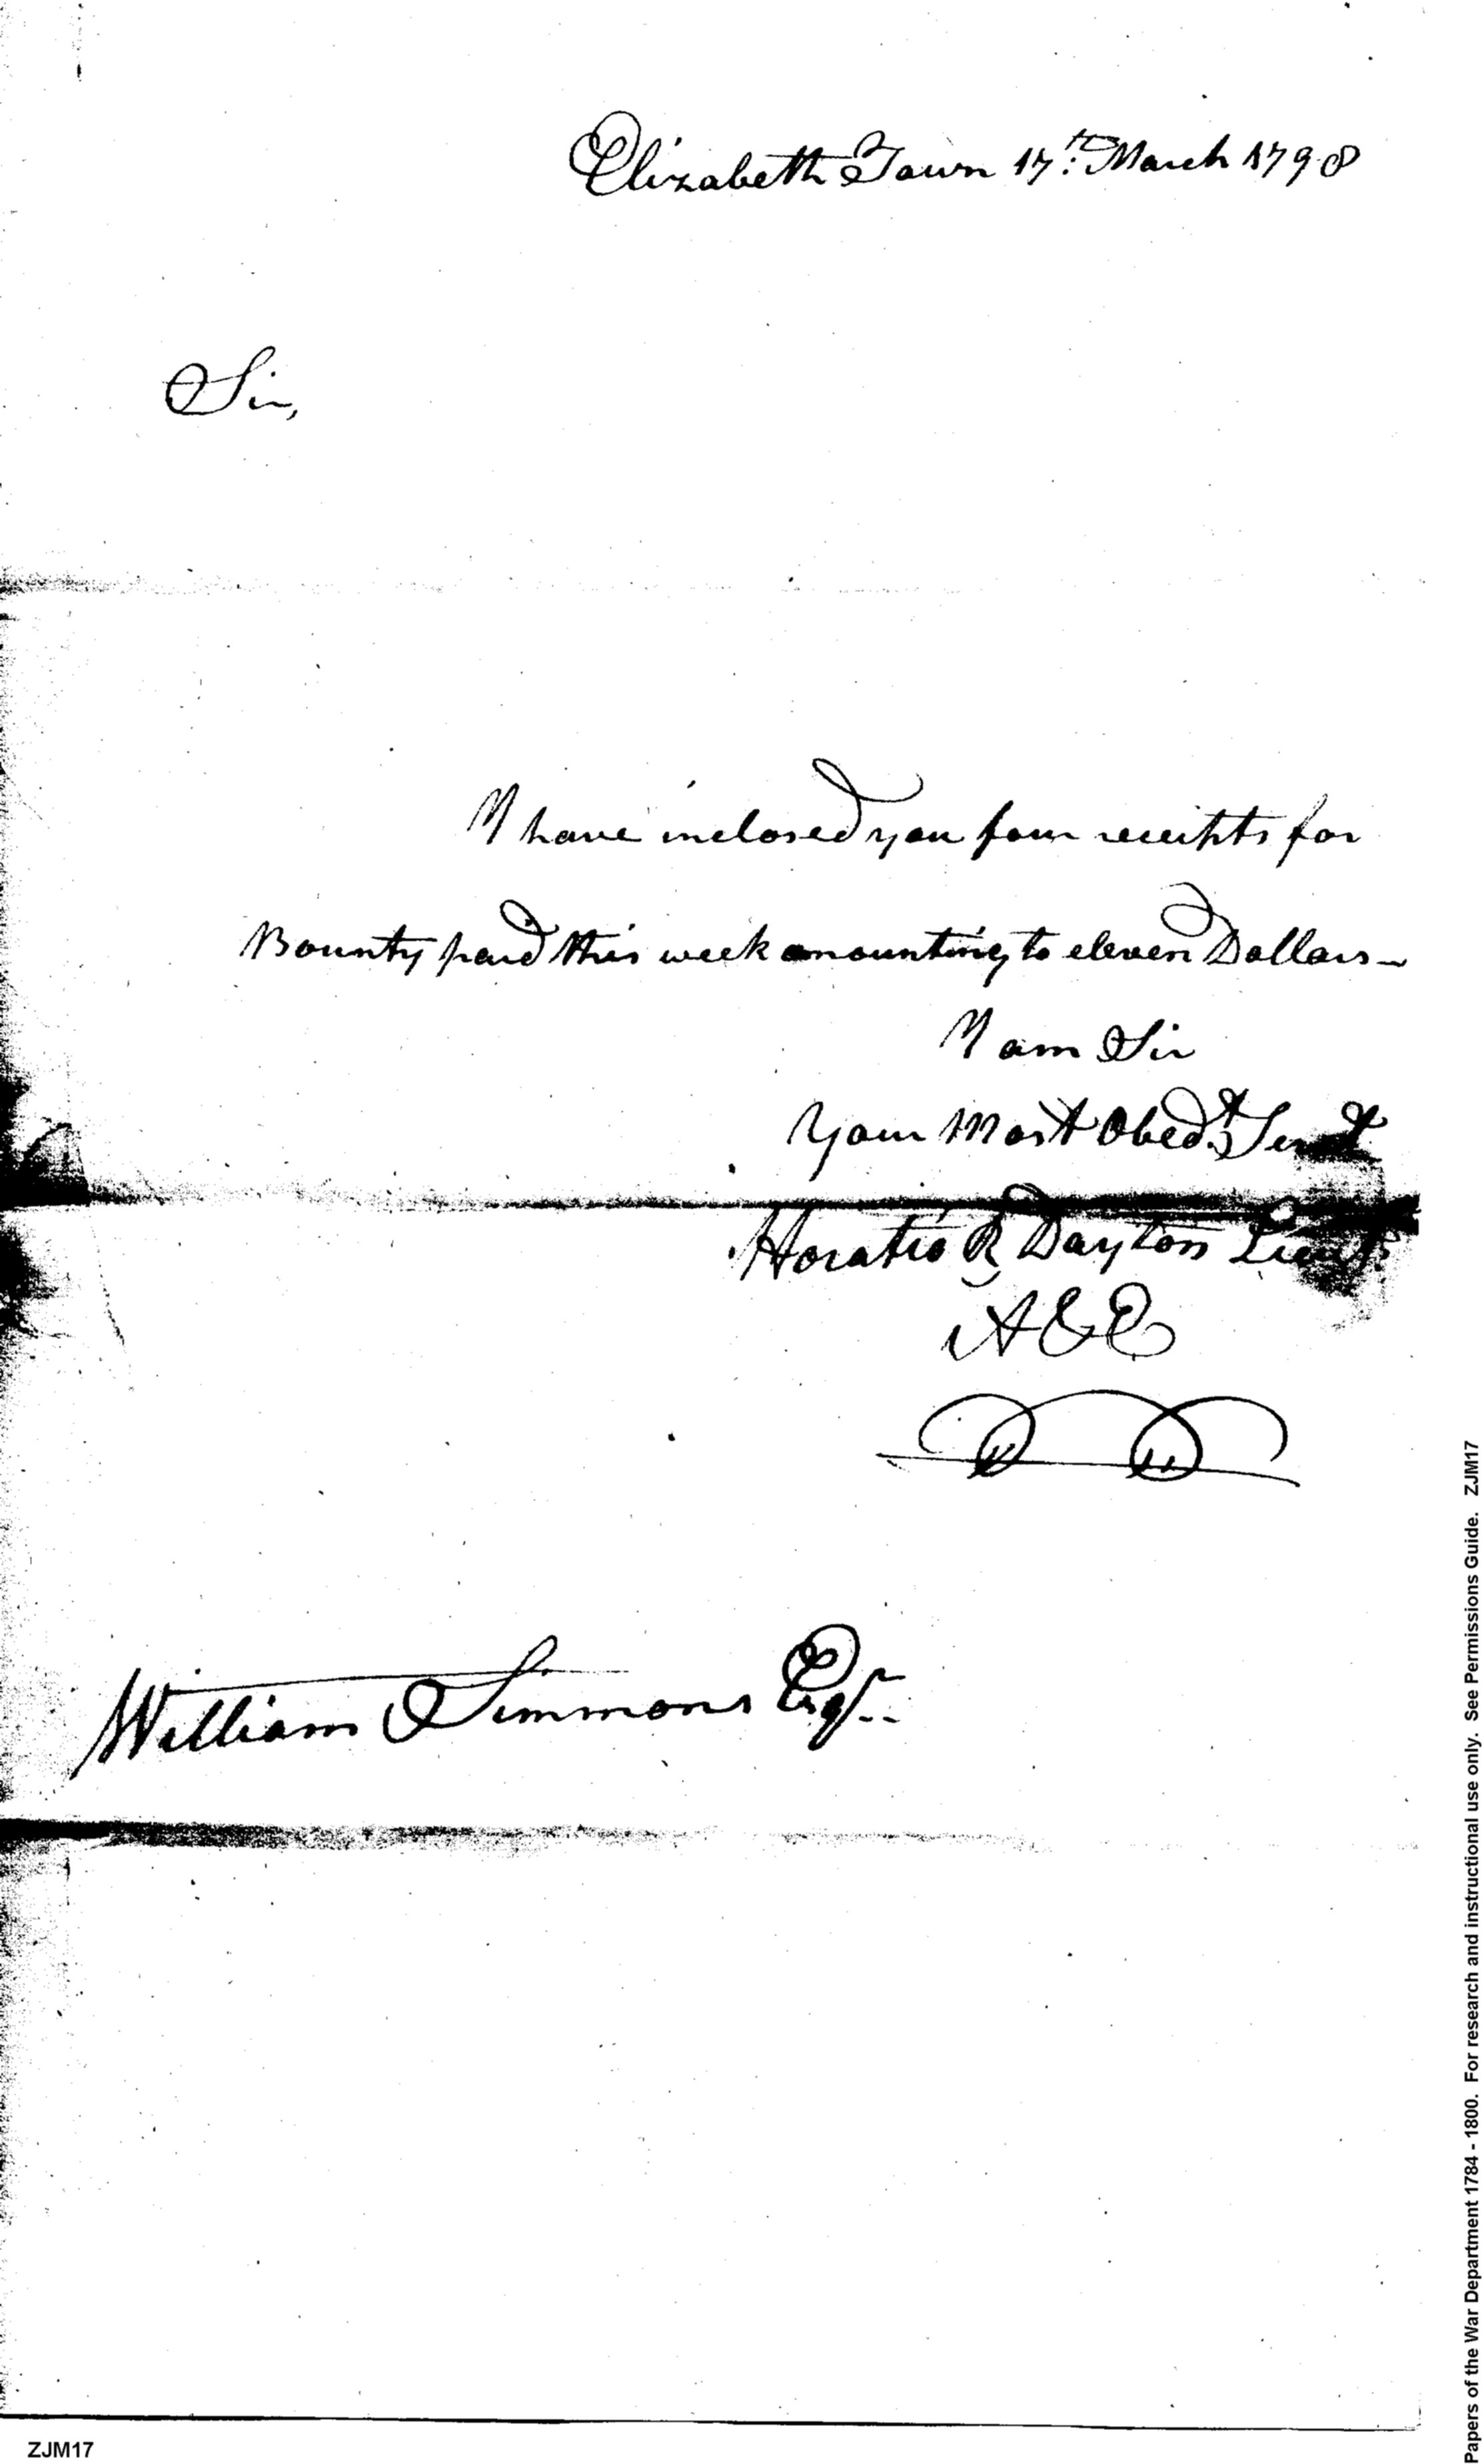 Elizabeth Town 17th March 1798
Sir,
I have inclosed you four receipts for
Bounty paid this week amounting to eleven Dollars -
I am Sir
Your Most Obedt Servt
Horatio R Dayton Lieut
A & E
William Simmons Esqr.
ZJM17
Papers of the War Department 1784 - 1800. For research and instructional use only. See Permissions Guide. ZJM17